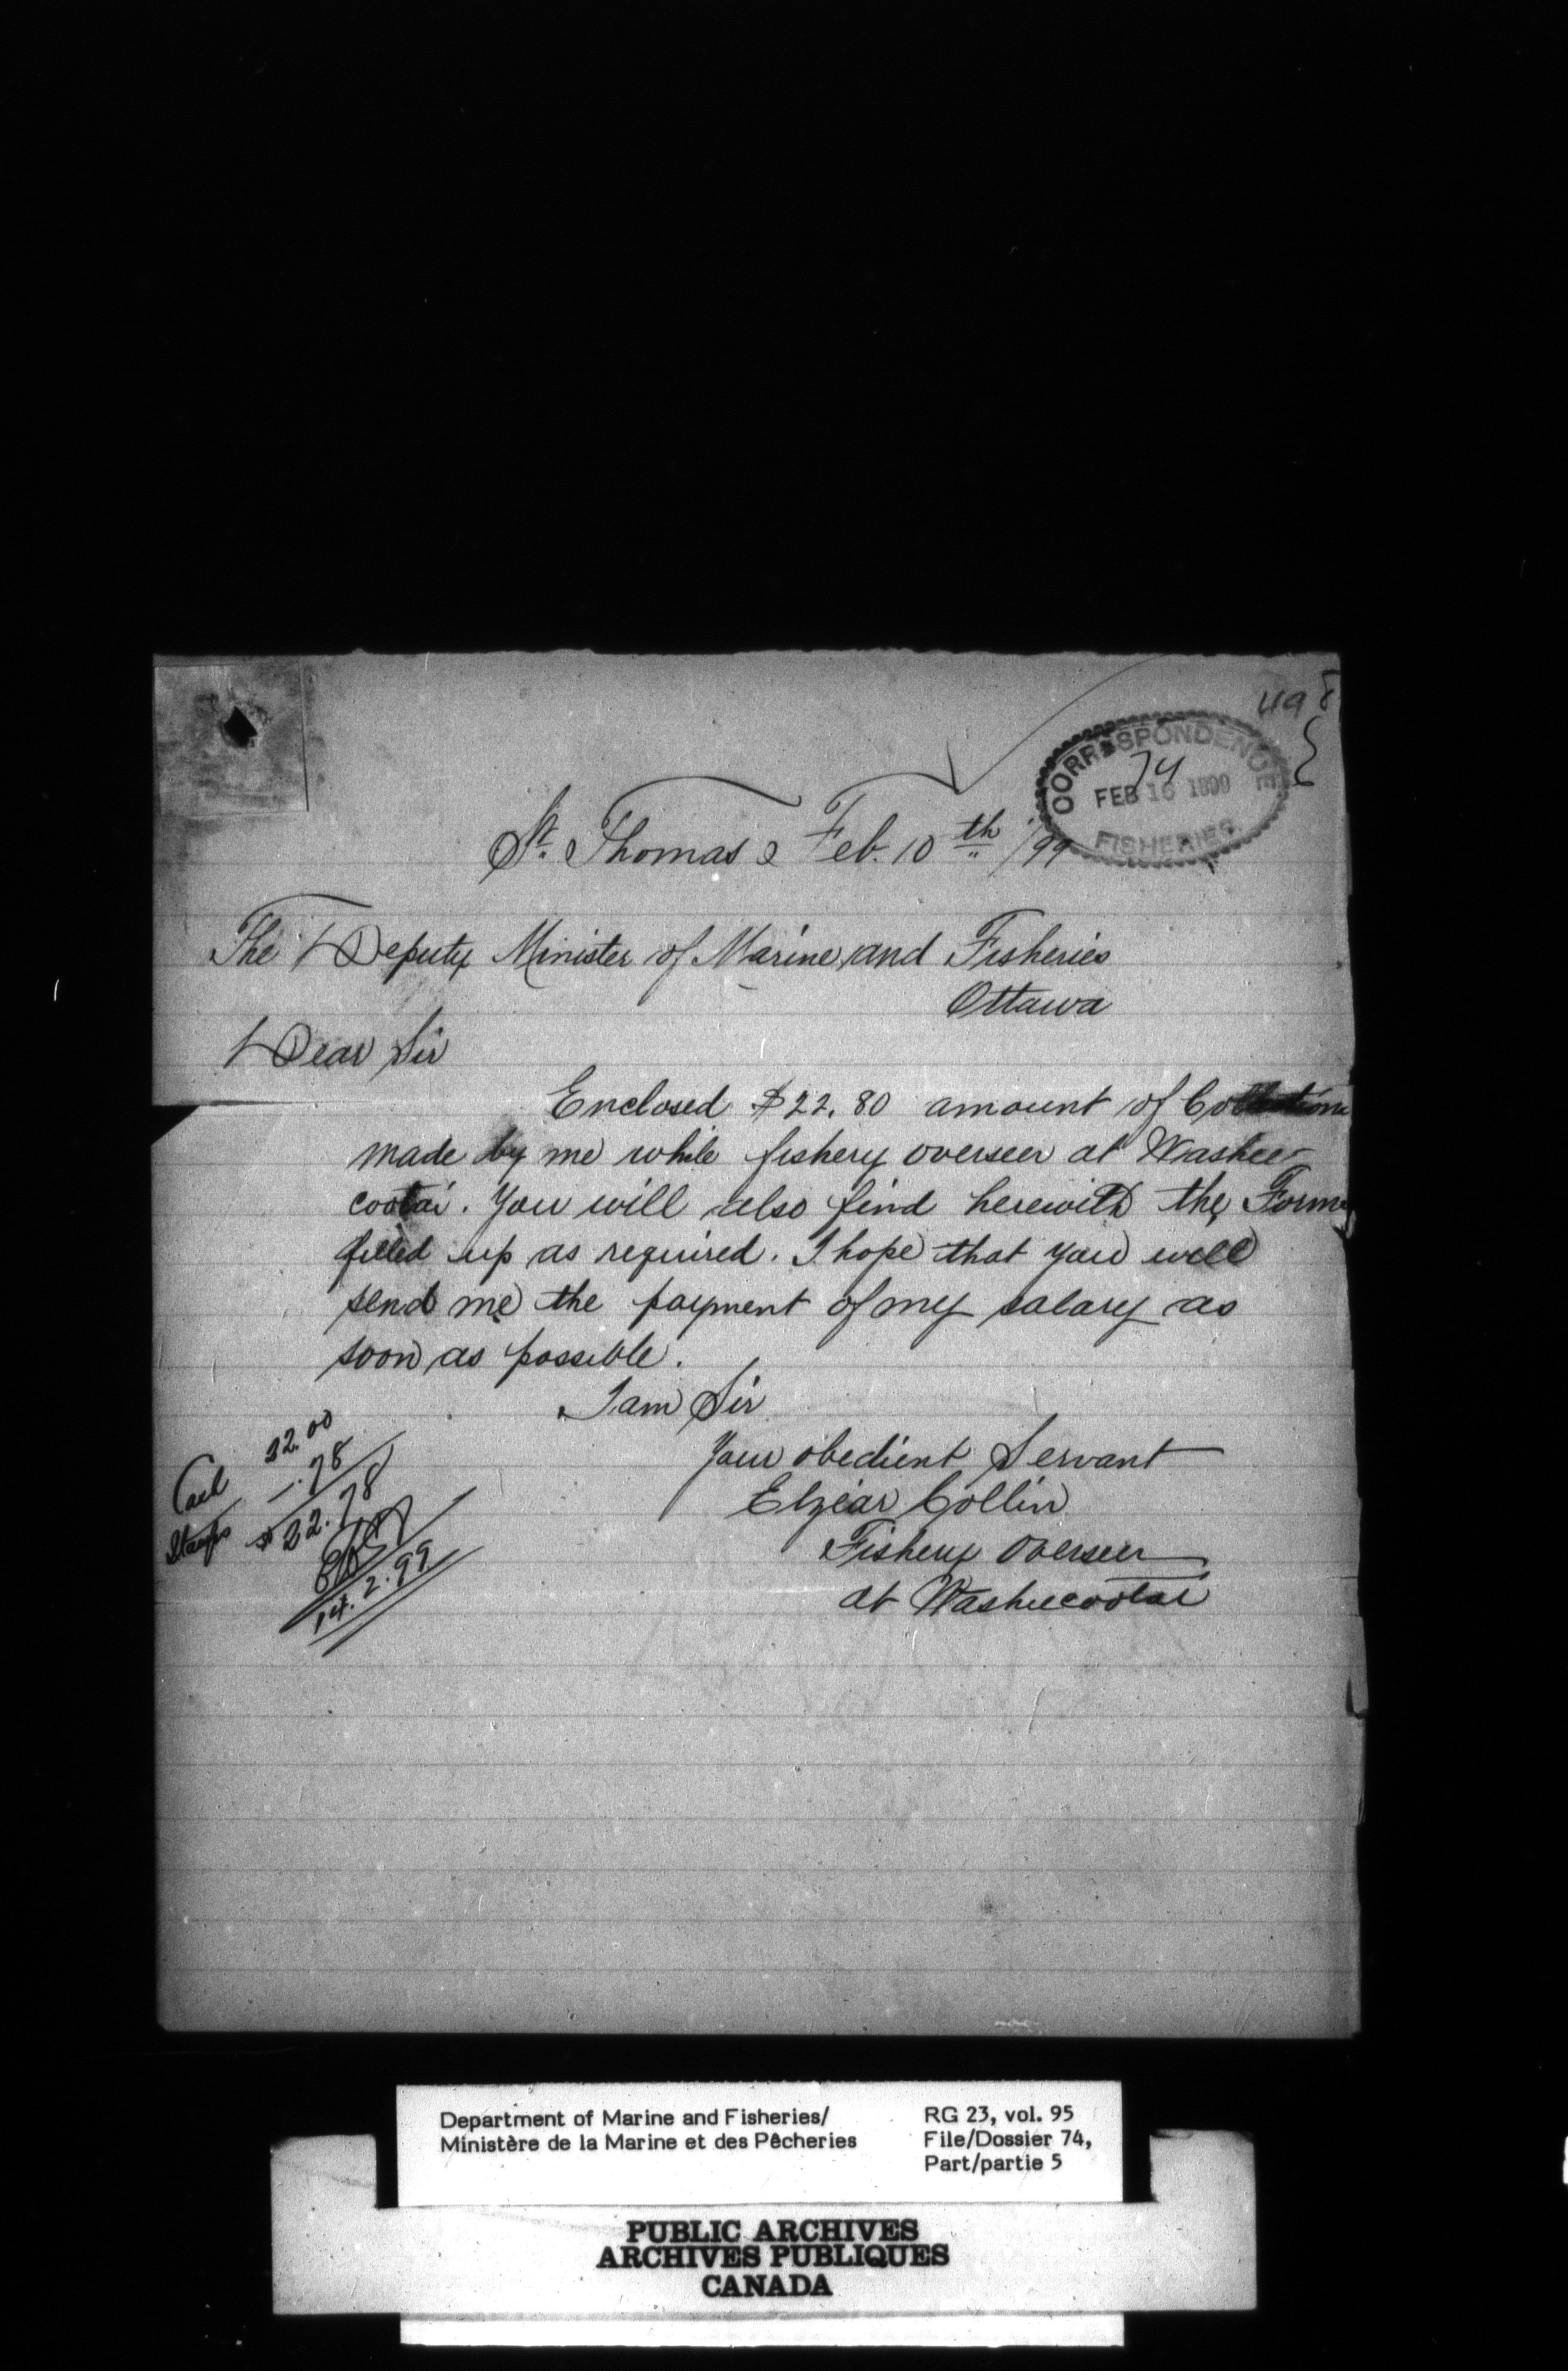 498
CORRESPONDENCE
74
FEB 16 1899
FISHERIES
St. Thomas Feb. 10th /99
The Deputy Minister of Marine and Fisheries
Ottawa
Dear Sir
Enclosed $22.80 amount of Collections
made by me while fishery overseer at Washee-
cootai. You will also find herewith the Forms
filled up as required. I hope that you will
send me the payment of my salary as
soon as possible.
I am Sir
Your obedient Servant
Elzéar Collin
Fishery Overseer
at Washeecootai
22.00
Stamps .78
$22.78
14.2.99
Department of Marine and Fisheries/
Ministère de la Marine et des Pêcheries
RG 23, vol. 95
File/Dossier 74,
Part/partie 5
PUBLIC ARCHIVES
ARCHIVES PUBLIQUES
CANADA